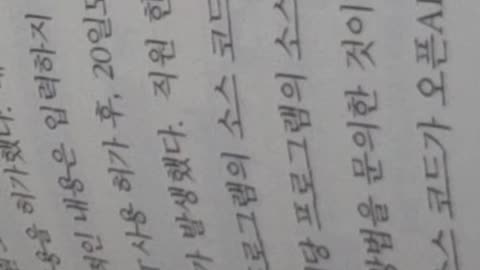 용을 허가했다.
적인 내용은 입력하지
사용 허가 후, 20일도
가 발생했다. 직원 한
로그램의 소스 코드
당 프로그램의 소스
방법을 문의한 것이
스 코드가 오픈AI